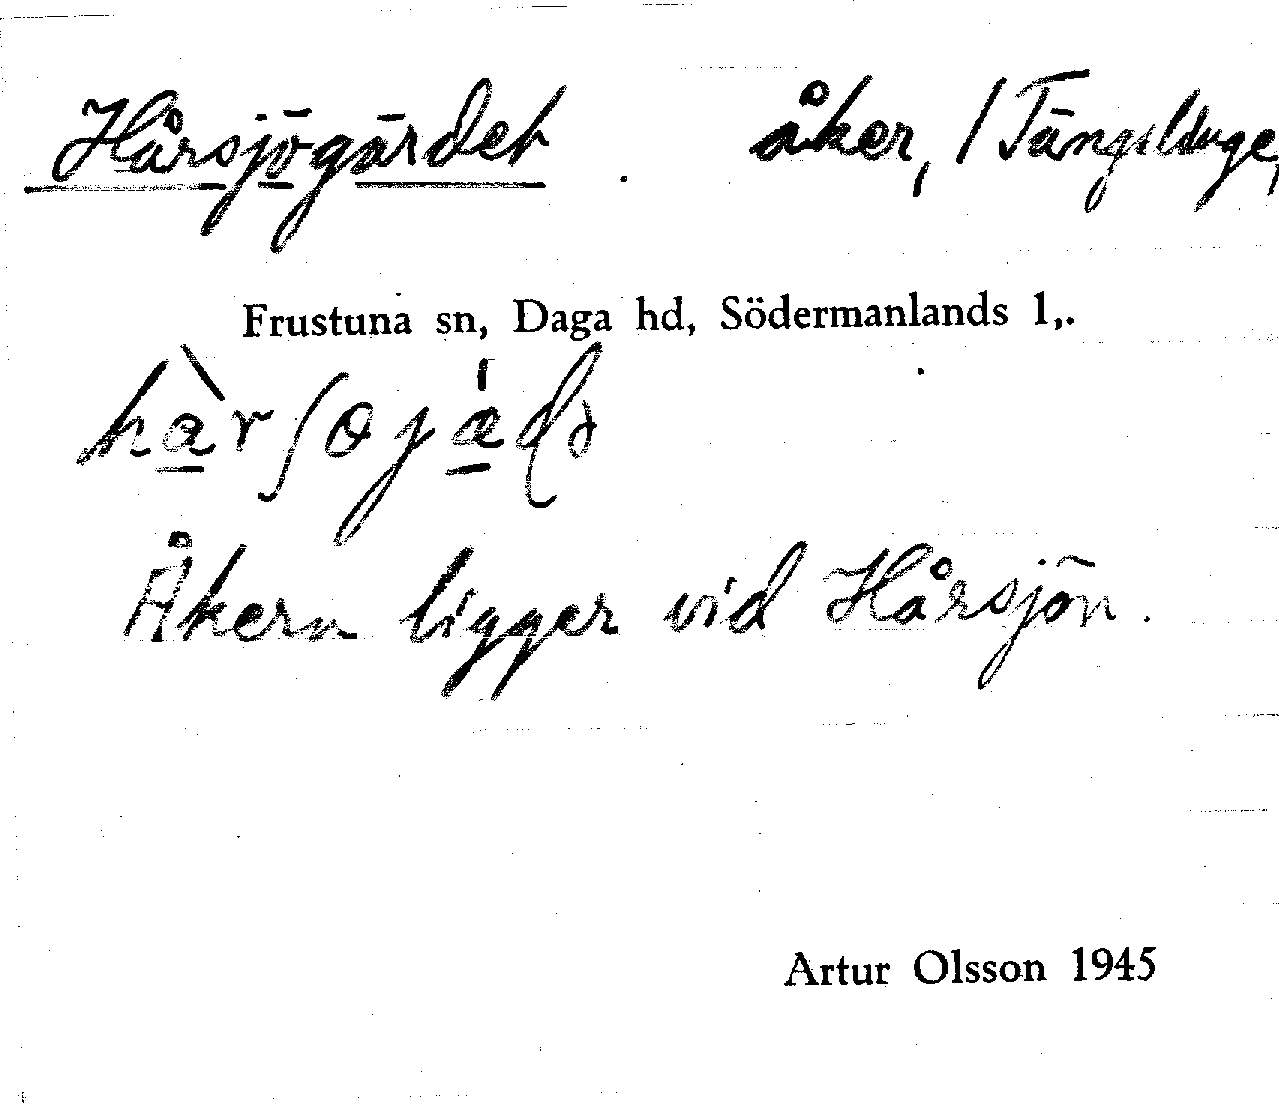 Hårsjögärdet . åker, / Tängslinge,
Frustuna sn, Daga hd, Södermanlands l,.
Åkern ligger vid Hårsjön.
Artur Olsson 1945